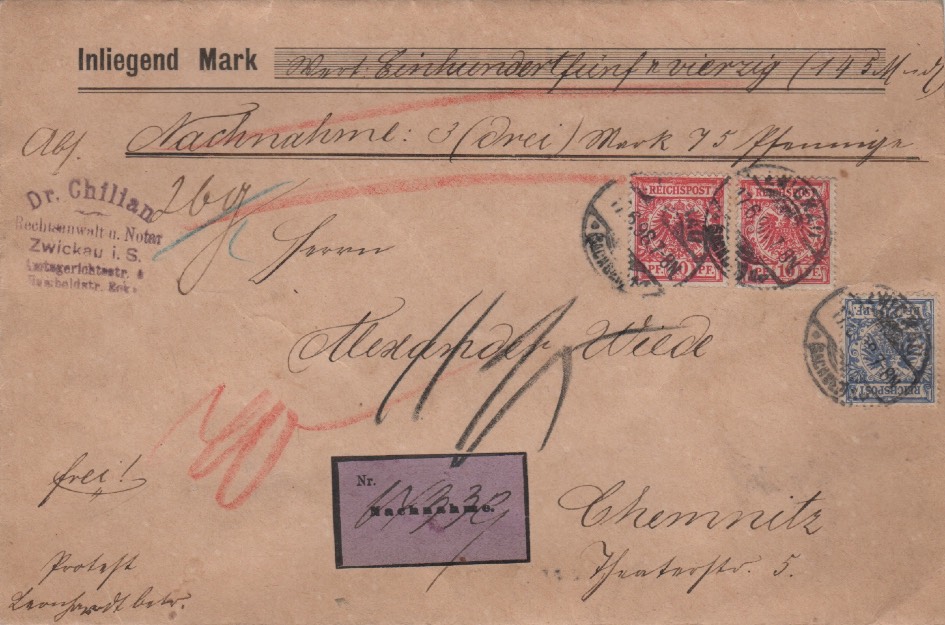 Inliegend Mark Wert Einhundertfünf u vierzig (145 M
Abs. Nachnahme: 3 (drei) Mark 75 Pfennige
26 g
Dr. Chilian
Rechtsanwalt u. Notar
Zwickau i. S.
Amtsgerichtsstr. &
Humboldtstr. Eck.
REICHSPOST
PF. 10 PF.
REICHSPOST
PF. 10
ZWICKAU
(SACHSEN)
REICHSPOST
Herrn
Alexander Wiede
40
frei!
Nr.
Nachnahme.
Chemnitz
Theaterstr. 5.
Protest
Leonhardt betr.